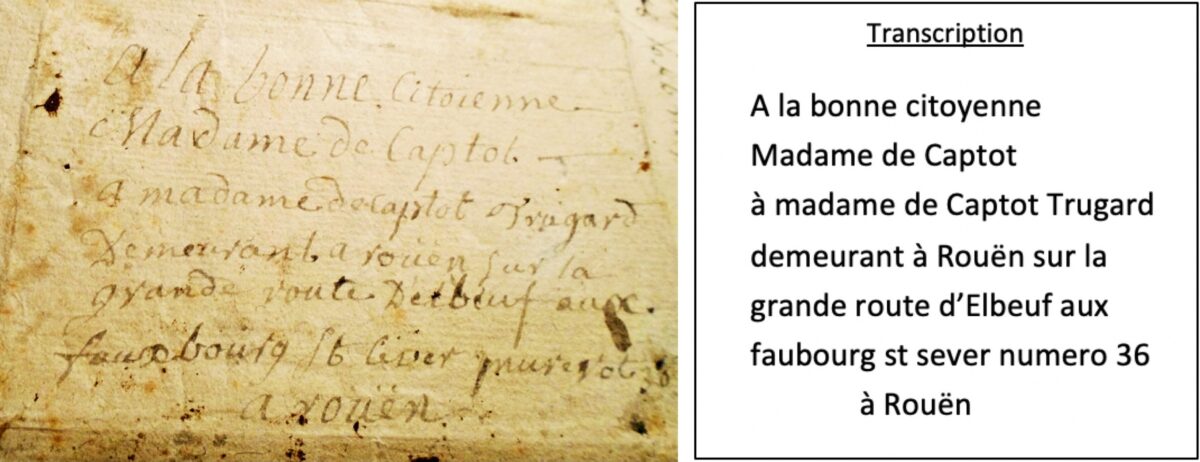 a la bonne Citoienne
Madame de Captot
a madame de captot Trugard
Demeurant a rouën sur la
grande route Delbeuf aux
fauxbourg st Sever 36
a rouën
Transcription
A la bonne citoyenne
Madame de Captot
à madame de Captot Trugard
demeurant à Rouën sur la
grande route d’Elbeuf aux
faubourg st sever numero 36
à Rouën